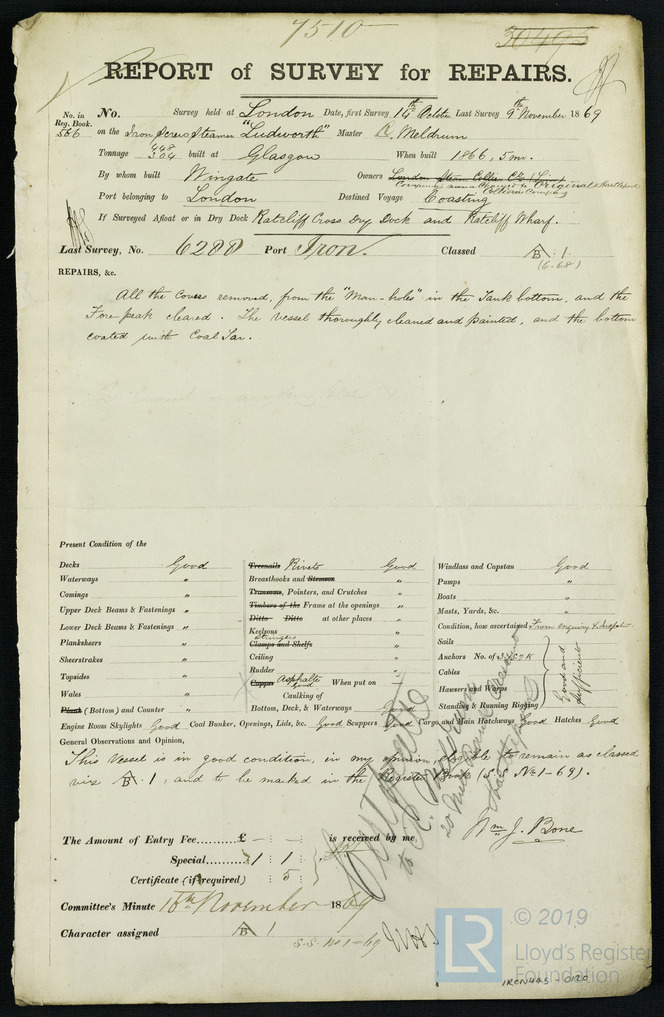 7510
30495
REPORT of SURVEY for REPAIRS.
No. in Reg. Book. No. Survey held at London Date, first Survey 14th October Last Survey 9th November 1869
556 on the Iron Screw Steamer "Ludworth" Master R. Meldrum
Tonnage 448 304 built at Glasgow When built 1866, 5 mo.
By whom built Wingate Owners London Steam Collier Co. (Lim)
Company now changed to Original Hartlepool Collieries Company
Port belonging to London Destined Voyage Coasting
If Surveyed Afloat or in Dry Dock Ratcliff Cross Dry Dock and Ratcliff Wharf.
Last Survey, No. 6288 Port Iron. Classed A B . 1.
(6.68)
REPAIRS, &c.
All the Covers removed, from the "Man-holes" in the Tank bottoms, and the
Fore peak cleared. The vessel thoroughly cleaned and painted, and the bottom
coated with Coal Tar.
Present Condition of the
Decks Good Treenails Rivets Good Windlass and Capstan Good
Waterways " Breasthooks and Stemson " Pumps "
Comings " Transoms, Pointers, and Crutches " Boats "
Upper Deck Beams & Fastenings " Timbers of the Frame at the openings " Masts, Yards, &c. "
Lower Deck Beams & Fastenings " Ditto Ditto at other places " Condition, how ascertained From enquiry &
Planksheers " Keelsons " Sails
Stringers
Sheerstrakes " Clamps and Shelfs " Anchors No. of
Topsides " Ceiling " Cables
Rudder "
Wales " Copper Asphalte Good When put on Hawsers and Warps
Good and sufficient
Plank (Bottom) and Counter " Caulking of Bottom, Deck, & Waterways Good Standing & Running Rigging
Engine Room Skylights Good Coal Bunker, Openings, Lids, &c. Good Scuppers Good Cargo, and Main Hatchways Good Hatches Good
General Observations and Opinion,
This Vessel is in good condition, in my opinion, eligible to remain as classed
viz A B . 1, and to be marked in the Register Book (S.S. No 1-69).
The Amount of Entry Fee.......... £ - : - : is received by me
Wm J. Bone
Special.......... 1 : 1 :
Certificate (if required) : 5 :
Committee's Minute 16th November 1869
Character assigned A B 1
S.S. No 1-69
© 2019
LR
Lloyd's Register
Foundation
IRON445-0120